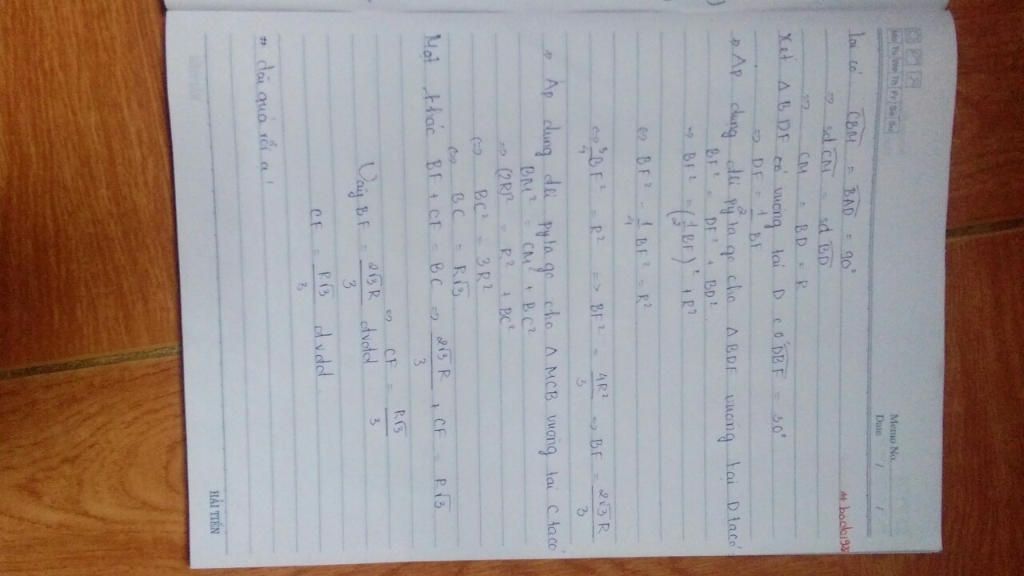 Memo No.
Date / /
Ta có CBM = BAD = 90°
⇒ sđ CM = sđ BD
⇒ CM = BD = R
Xét Δ BDF có vuông tại D có DBF = 30°
⇒ DF = 1/2 BF
⇒ Áp dụng đlí Pytago cho Δ BDF vuông tại D ta có
BF² = DF² + BD²
⇒ BF² = (1/2 BF)² + R²
⇔ BF² - 1/4 BF² = R²
⇔ 3/4 BF² = R² ⇒ BF² = 4R²/3 ⇒ BF = 2√3R/3
⇒ Áp dụng đlí Pytago cho Δ MCB vuông tại C ta có
BM² = CM² + BC²
⇒ (2R)² = R² + BC²
⇔ BC² = 3R²
⇔ BC = R√3
Mặt khác BF + CF = BC ⇒ 2√3R/3 + CF = R√3
⇒ CF = R√3/3
Vậy BF = 2√3R/3 đvđd
CF = R√3/3 đvđd
" dài quá rồi ạ "
HẢI TIẾN